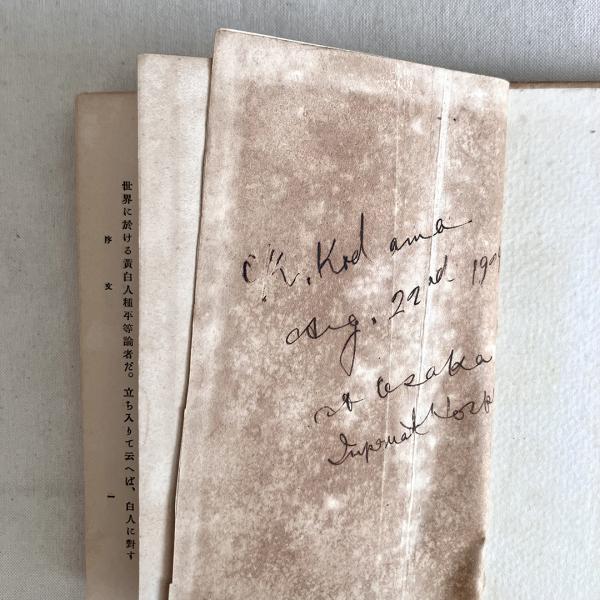 世界に於ける黃白人種平等論者だ。立ち入りて云へば、白人に對す
序文
一
K. Kodama
Aug. 22nd 19
at Osaka